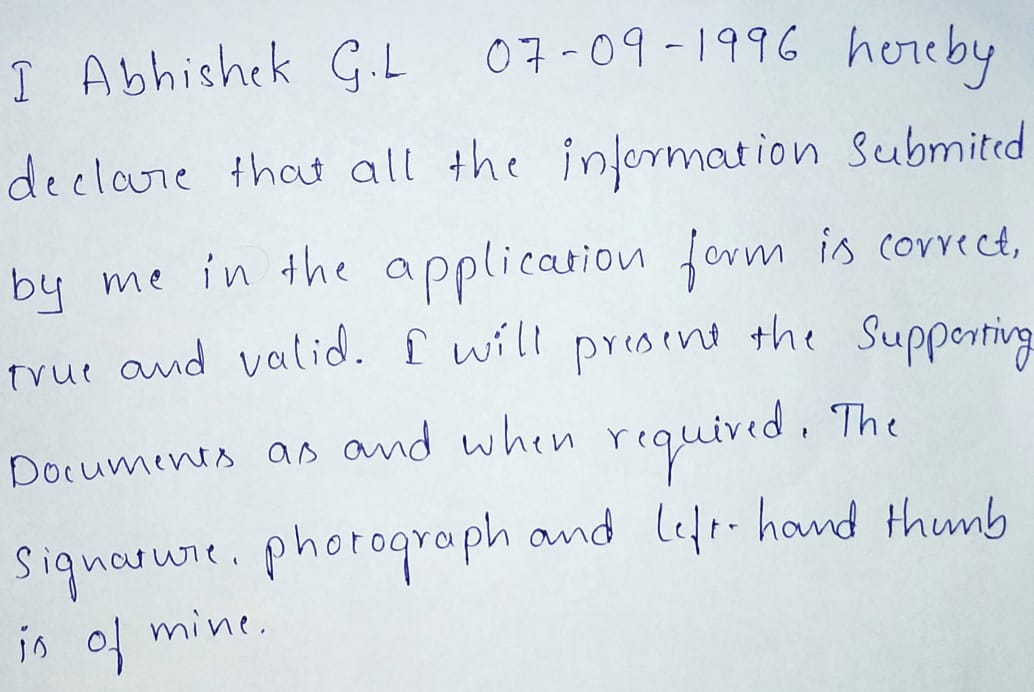 I Abhishek G.L 07-09-1996 hereby
declare that all the information Submited
by me in the application form is correct,
true and valid. I will present the Supporting
Documents as and when required. The
Signature, photograph and left-hand thumb
is of mine.